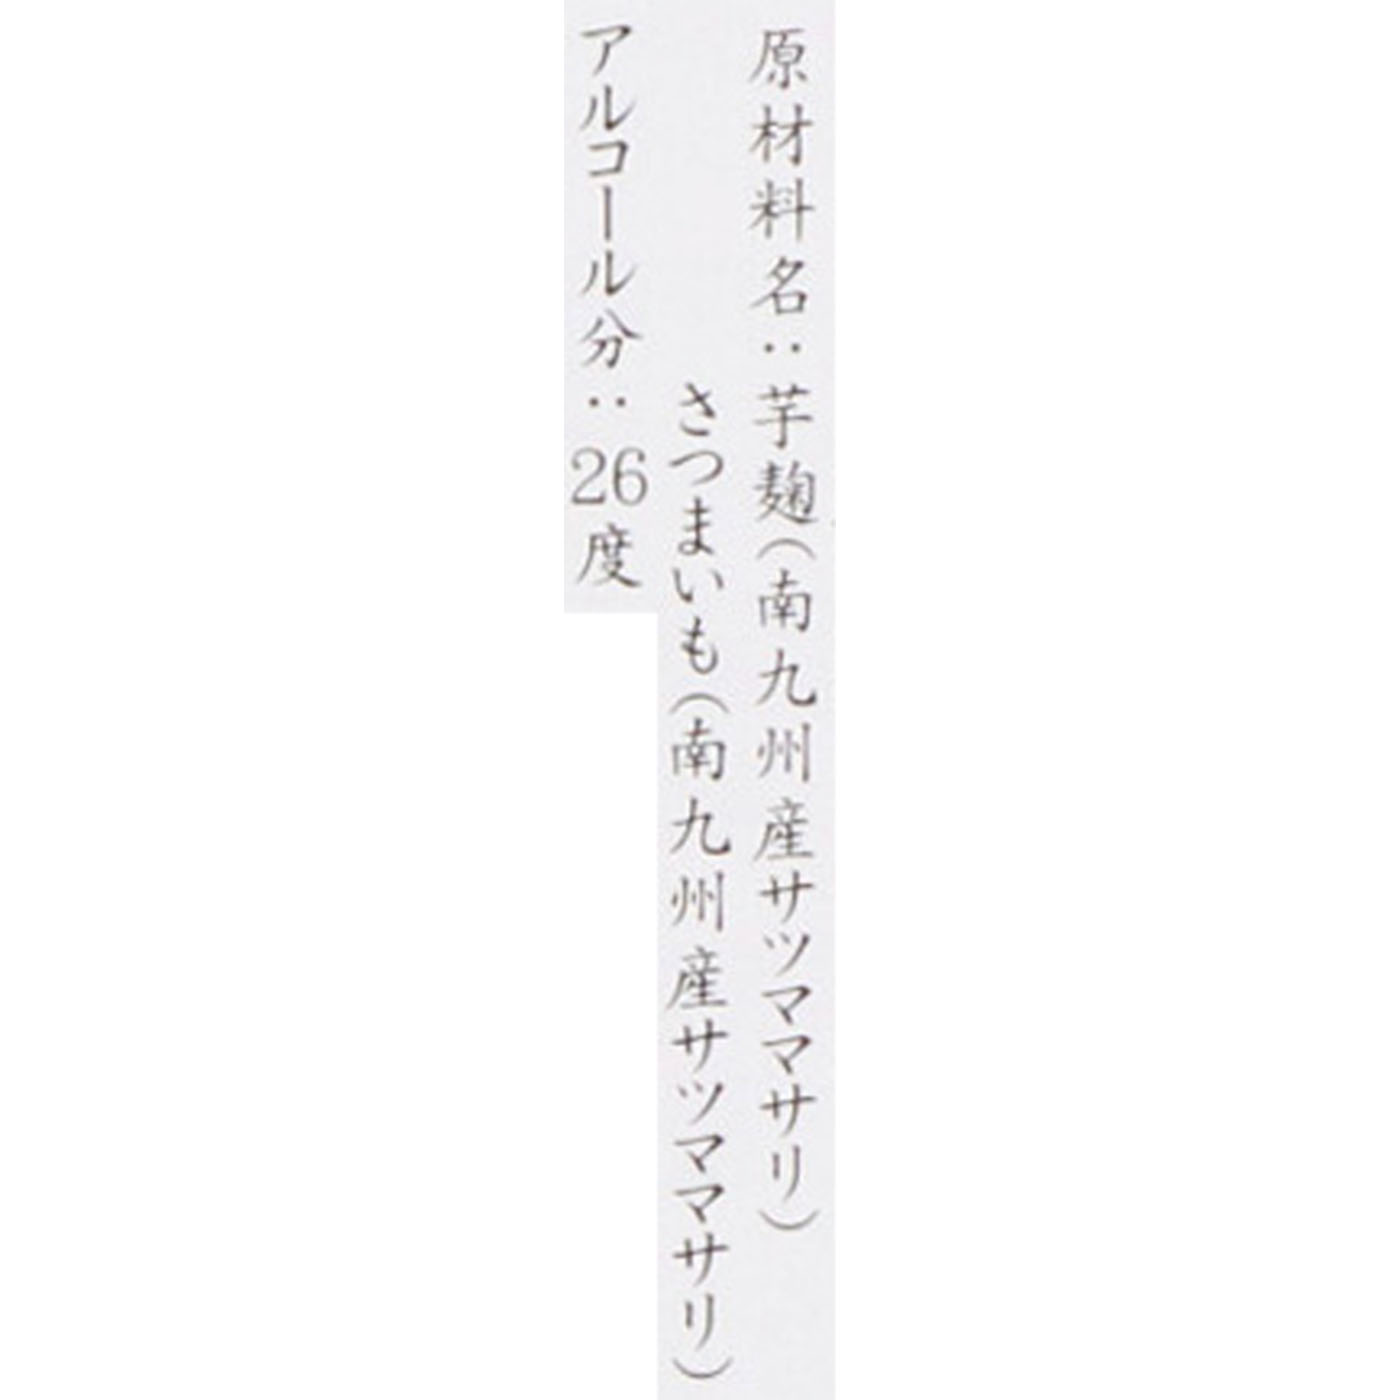 原材料名：芋麹（南九州産サツママサリ）
さつまいも（南九州産サツママサリ）
アルコール分：26度